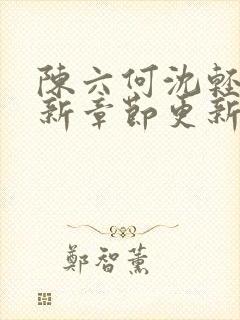 陳六何沈輕
新章節更新
鄭智薰